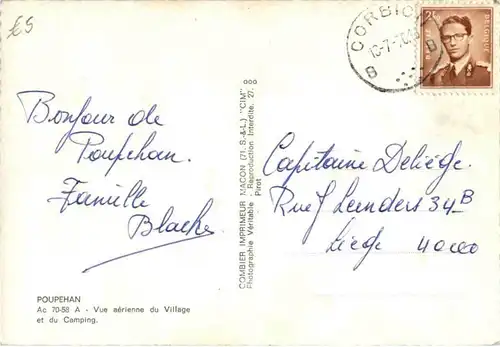 £5
Bonjour de
Poupehan.
Famille
Blacke
POUPEHAN
Ac 70-58 A - Vue aérienne du Village
et du Camping.
COMBIER IMPRIMEUR MACON (71. S.-&-L.) "CIM"
Photographie Véritable - Reproduction Interdite. 27.
Pirot
CORBION
B B
BELGIE BELGIQUE
Capitaine Deliége.
Rue J Leenders 34B
Liége 4000